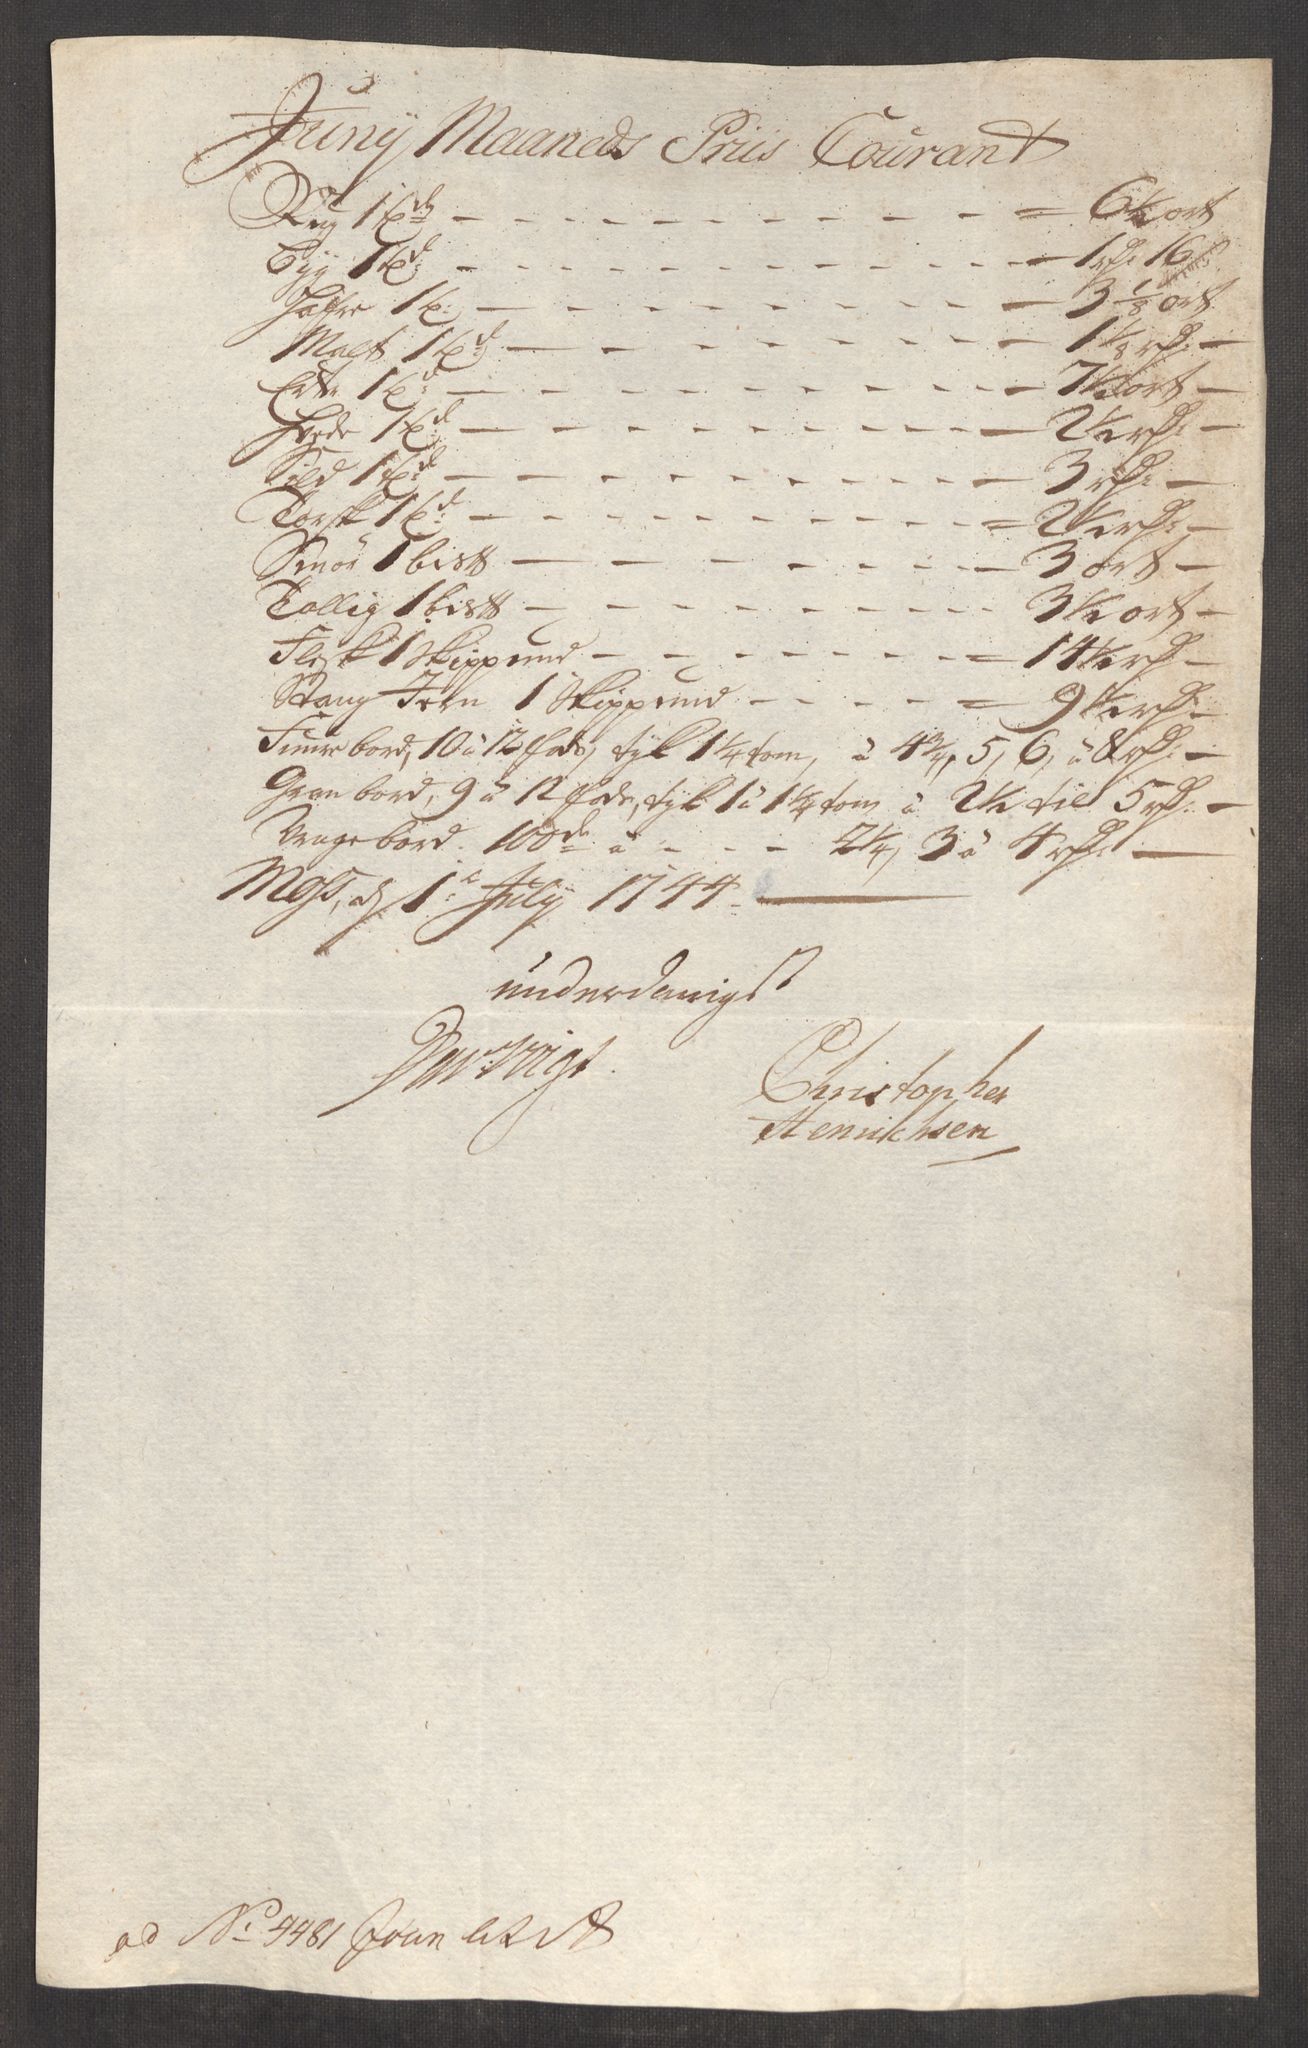 Juny Maaneds Priis Courant
Rug 1 td: - - - 6½ ort
Byg 1 td: - - - 1 rd: 16 s
Hafre 1 t: - - - 3 1/8 ort
Malt 1 td: - - - 1 1/8 rd: -
Erter 1 td: - - - 7½ ort -
Hvede 1 td: - - - 2½ rd: -
Sild 1 td: - - - 3 rd: -
Torsk 1 td: - - - 2½ rd: -
Smør 1 bistt - - - 3 ort -
Tallig 1 bistt - - - 3½ ort -
Flesk 1 Skippund - - - 14½ rd -
Stang Jern 1 Skippund - - - 9½ rd: -
Furre bord, 10 à 12 fods, tyk 1¼ tom, à 4¾, 5, 6, à 8 rd: -
Gran bord, 9 à 12 fods, tyk 1 à 1¼ tom à 2½ til 5 rd: -
Vrage bord 100de à - - - 2¼, 3 à 4 rd: -
Moss, d 1e July 1744.
underdanigst
Christopher
Henrichsen
ad No: 4481 Joun Lit A